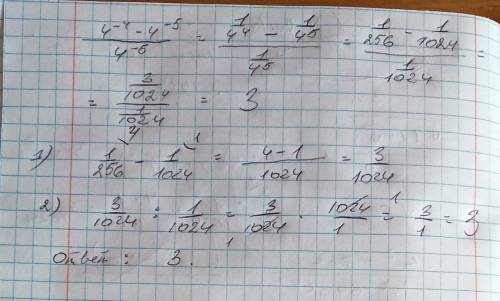 (4⁻⁴ - 4⁻⁵) / 4⁻⁵ = (1/4⁴ - 1/4⁵) / (1/4⁵) = (1/256 - 1/1024) / (1/1024) =
= (3/1024) / (1/1024) = 3
1) 1/256 (4 - 1/1024 (1 = (4-1)/1024 = 3/1024
2) 3/1024 : 1/1024 = 3/1024 1 · 1024/1 1 = 3/1 = 3
Ответ : 3.